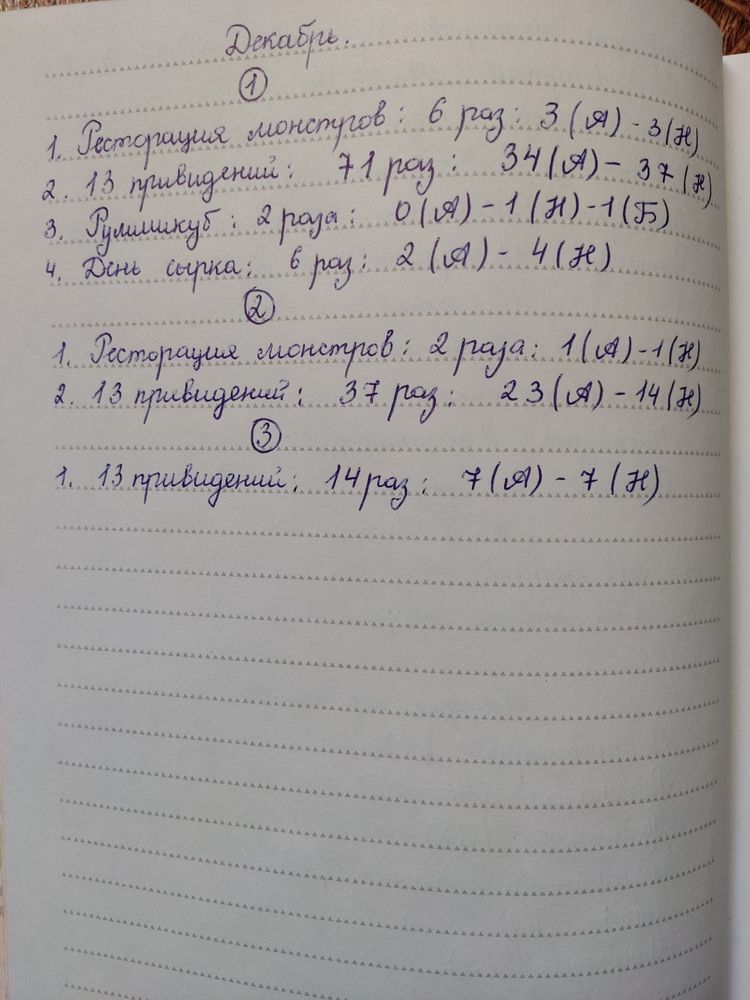 Декабрь.
1
1. Ресторация монстров: 6 раз: 3(А) - 3(Н)
2. 13 привидений: 71 раз: 34(А) - 37(Н)
3. Руммикуб: 2 раза: 0(А) - 1(Н) - 1(Б)
4. День сырка: 6 раз: 2(А) - 4(Н)
2
1. Ресторация монстров: 2 раза: 1(А) - 1(Н)
2. 13 привидений: 37 раз: 23(А) - 14(Н)
3
1. 13 привидений: 14 раз: 7(А) - 7(Н)